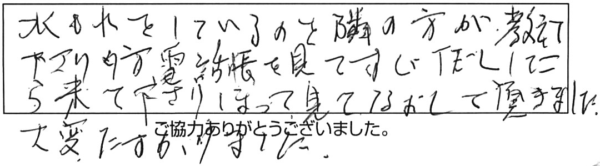 水もれをしているのを隣の方が教えて
下さり電話帳を見てすぐTELした
ら来て下さりほって見てなおして頂きました
大変たすかりました。
ご協力ありがとうございました。